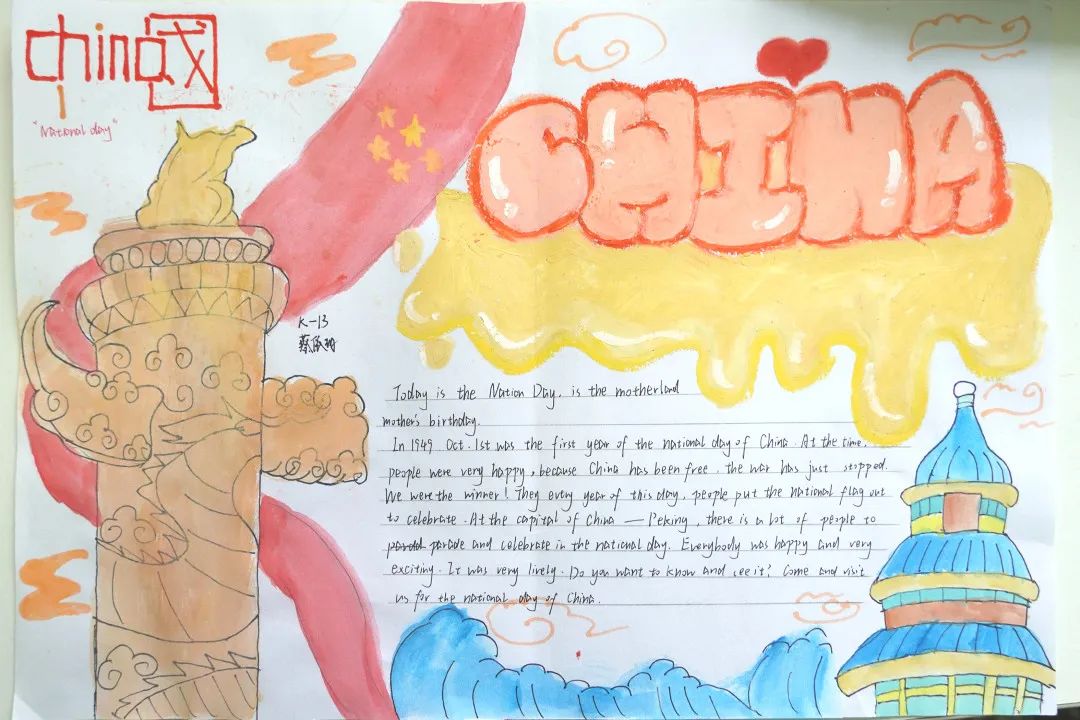 china国
"National day"
CHINA
K-13
Today is the Nation Day, is the motherland
mother's birthday.
In 1949 Oct. 1st was the first year of the national day of China. At the time,
people were very happy, because China has been free, the war has just stopped.
We were the winner! They every year of this day, people put the national flag out
to celebrate. At the capital of China — Peking, there is a lot of people to
parade and celebrate in the national day. Everybody was happy and very
exciting. It was very lively. Do you want to know and see it? Come and visit
us for the national day of China.